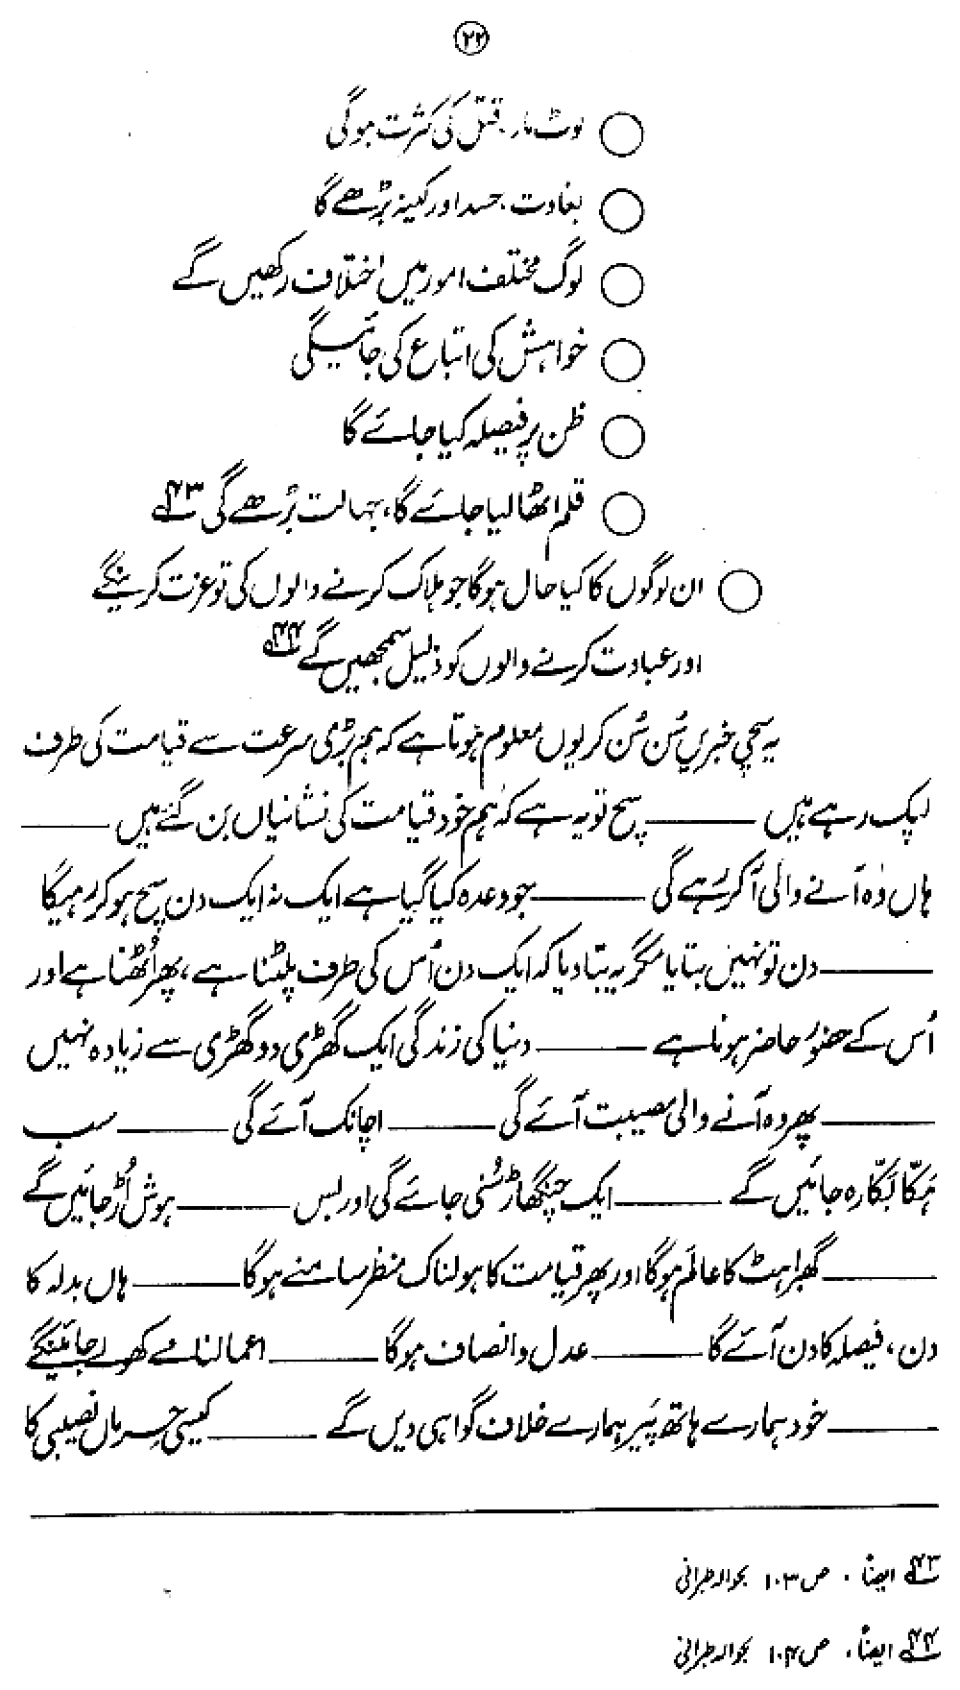 ۲۲
○ لوٹ مار، قتل کی کثرت ہوگی
○ بغاوت، حسد اور کینہ بڑھے گا
○ لوگ مختلف امور میں اختلاف رکھیں گے
○ خواہش کی اتباع کی جائیگی
○ ظن پر فیصلہ کیا جائے گا
○ قلم اٹھالیا جائے گا، جہالت بڑھے گی ۴۳؎
○ ان لوگوں کا کیا حال ہوگا جو ہلاک کرنے والوں کی تو عزت کرینگے
اور عبادت کرنے والوں کو ذلیل سمجھیں گے ۴۴؎
یہ سچی خبریں سُن سُن کر یوں معلوم ہوتا ہے کہ ہم بڑی سرعت سے قیامت کی طرف
لپک رہے ہیں ——— سچ تو یہ ہے کہ ہم خود قیامت کی نشانیاں بن گئے ہیں ———
ہاں وہ آنے والی آکر رہے گی ——— جو وعدہ کیا گیا ہے ایک نہ ایک دن سچ ہو کر رہیگا
——— دن تو نہیں بتایا مگر یہ بتا دیا کہ ایک دن اُس کی طرف پلٹنا ہے، پھر اُٹھنا ہے اور
اُس کے حضور حاضر ہونا ہے ——— دنیا کی زندگی ایک گھڑی دو گھڑی سے زیادہ نہیں
——— پھر وہ آنے والی مصیبت آئے گی ——— اچانک آئے گی ——— سب
ہکّا بکّا رہ جائیں گے ——— ایک چنگھاڑ سُنی جائے گی اور بس ——— ہوش اُڑ جائیں گے
——— گھبراہٹ کا عالم ہوگا اور پھر قیامت کا ہولناک منظر سامنے ہوگا ——— ہاں بدلہ کا
دن، فیصلہ کا دن آئے گا ——— عدل و انصاف ہوگا ——— اعمالنامے کھولے جائینگے
——— خود ہمارے ہاتھ پَیر ہمارے خلاف گواہی دیں گے ——— کیسی حِرماں نصیبی کا
۴۳؎ ایضاً، ص ۱۰۳ بحوالہ طبرانی
۴۴؎ ایضاً، ص ۱۰۴ بحوالہ طبرانی